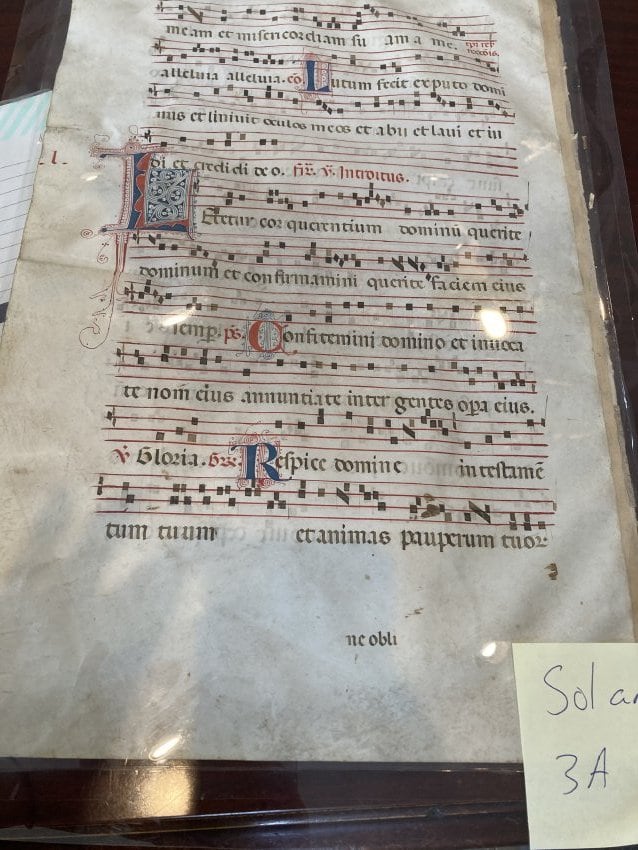 meam et misericordiam su am a me.
alleluia alleluia. cō. Lutum fecit ex puto domi
nus et liniuit oculos meos et abii et laui et ui
di et credi di de o. Introitus.
Letetur cor querentium dominū querite
dominum et confirmamini querite faciem eius
semp. ps. Confitemini domino et inuoca
te nom̄ eius annuntiate inter gentes opa eius.
℣ Gloria. Respice domine in testamē
tum tuum et animas pauperum tuoꝝ
ne obli
Sol
3A